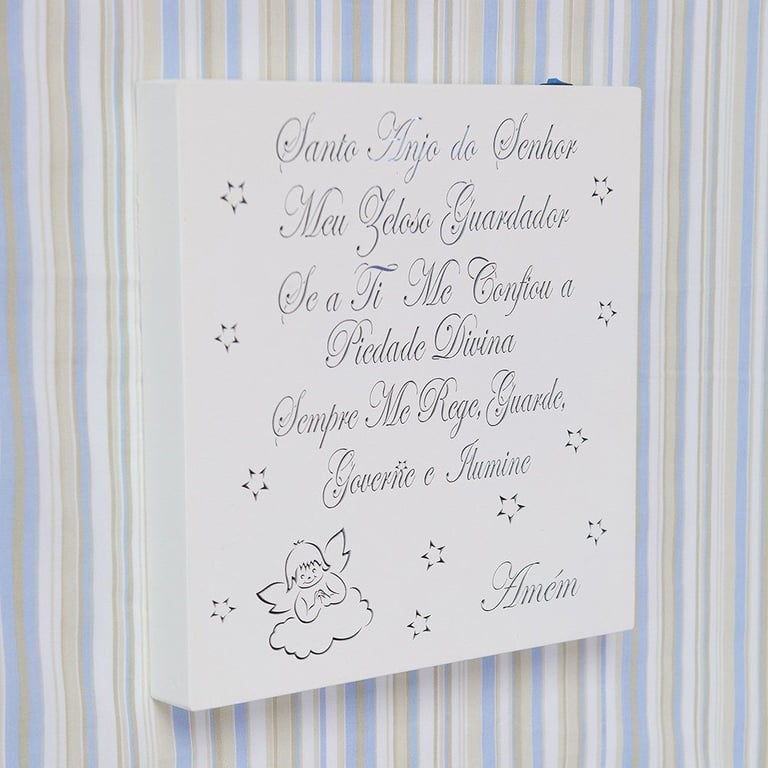 Santo Anjo do Senhor
Meu Zeloso Guardador
Se a Ti Me Confiou a
Piedade Divina
Sempre Me Rege, Guarde,
Governe e Ilumine
Amém